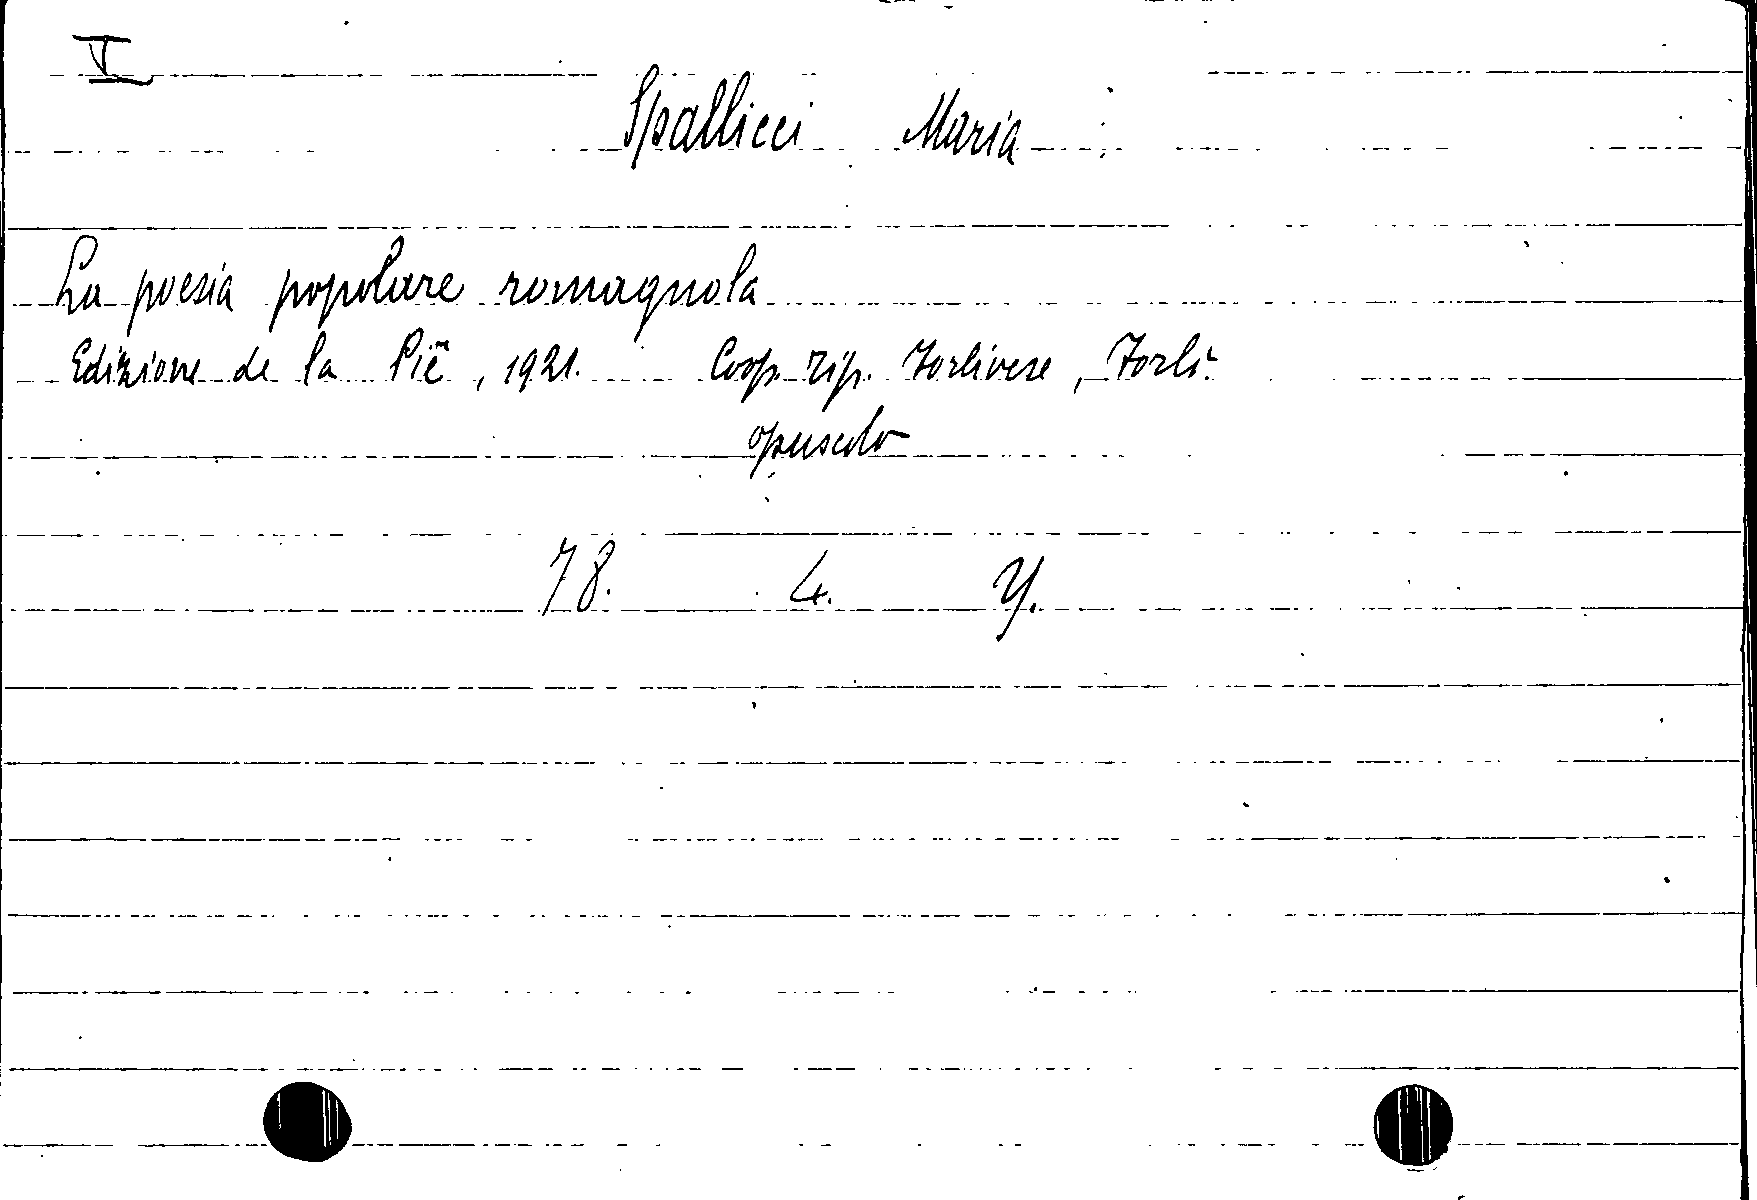 V
Spallicci Maria
La poesia popolare romagnola
Edizione de la Piê, 1921. Coop. Tip. Forlivese, Forlì.
opuscolo
78. 4. Y.